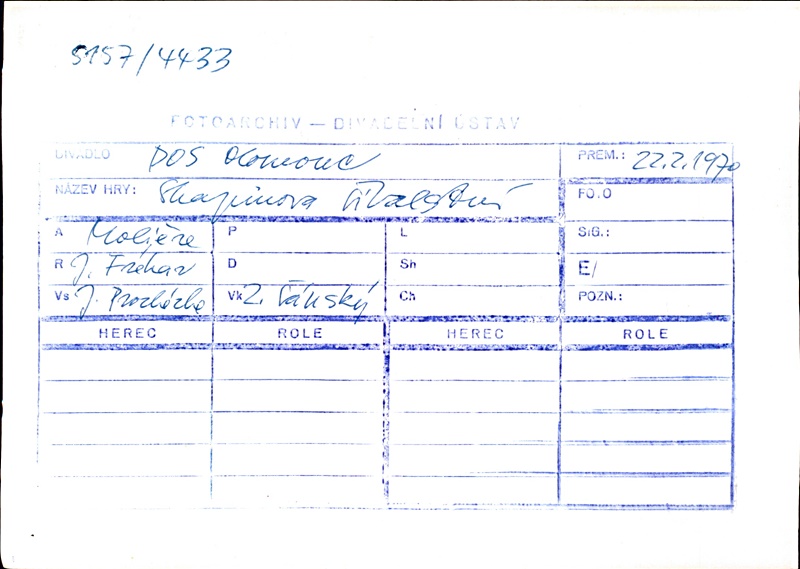 5157/4433
FOTOARCHIV — DIVADELNÍ ÚSTAV
DIVADLO DOS Olomouc PREM.: 22.2.1970
NÁZEV HRY: Skapinova FOTO
A Molière P L SIG.:
R J. Fréhar D Sh E/
Vs J. Procházka Vk Z. Ch POZN.:
HEREC ROLE HEREC ROLE